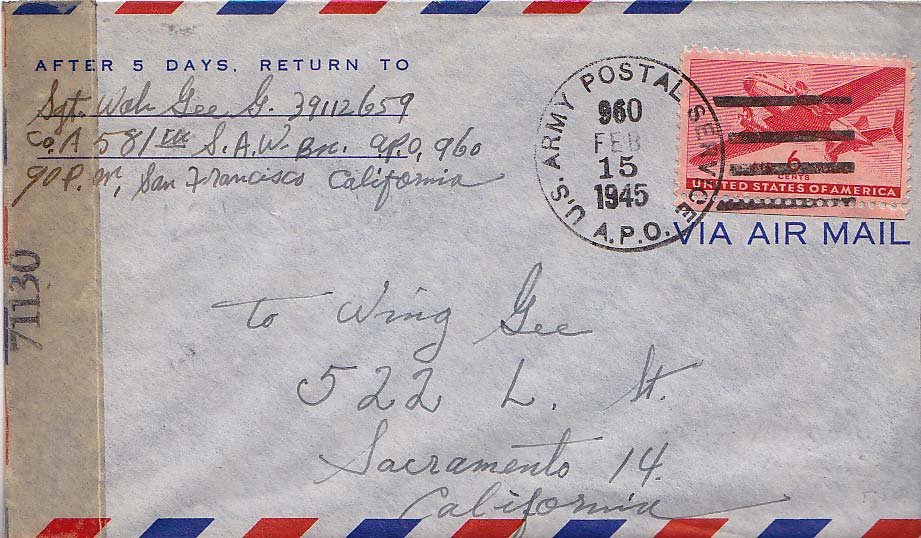 AFTER 5 DAYS, RETURN TO
Sgt. Wah Gee G. 39112659
Co. A 581 S.A.W. Bn. A.P.O. 960
90 P. M, San Francisco California
U.S. ARMY POSTAL SERVICE
960
FEB
15
1945
A.P.O.
6
CENTS
UNITED STATES OF AMERICA
VIA AIR MAIL
71130
to Wing Gee
522 L. St.
Sacramento 14.
California